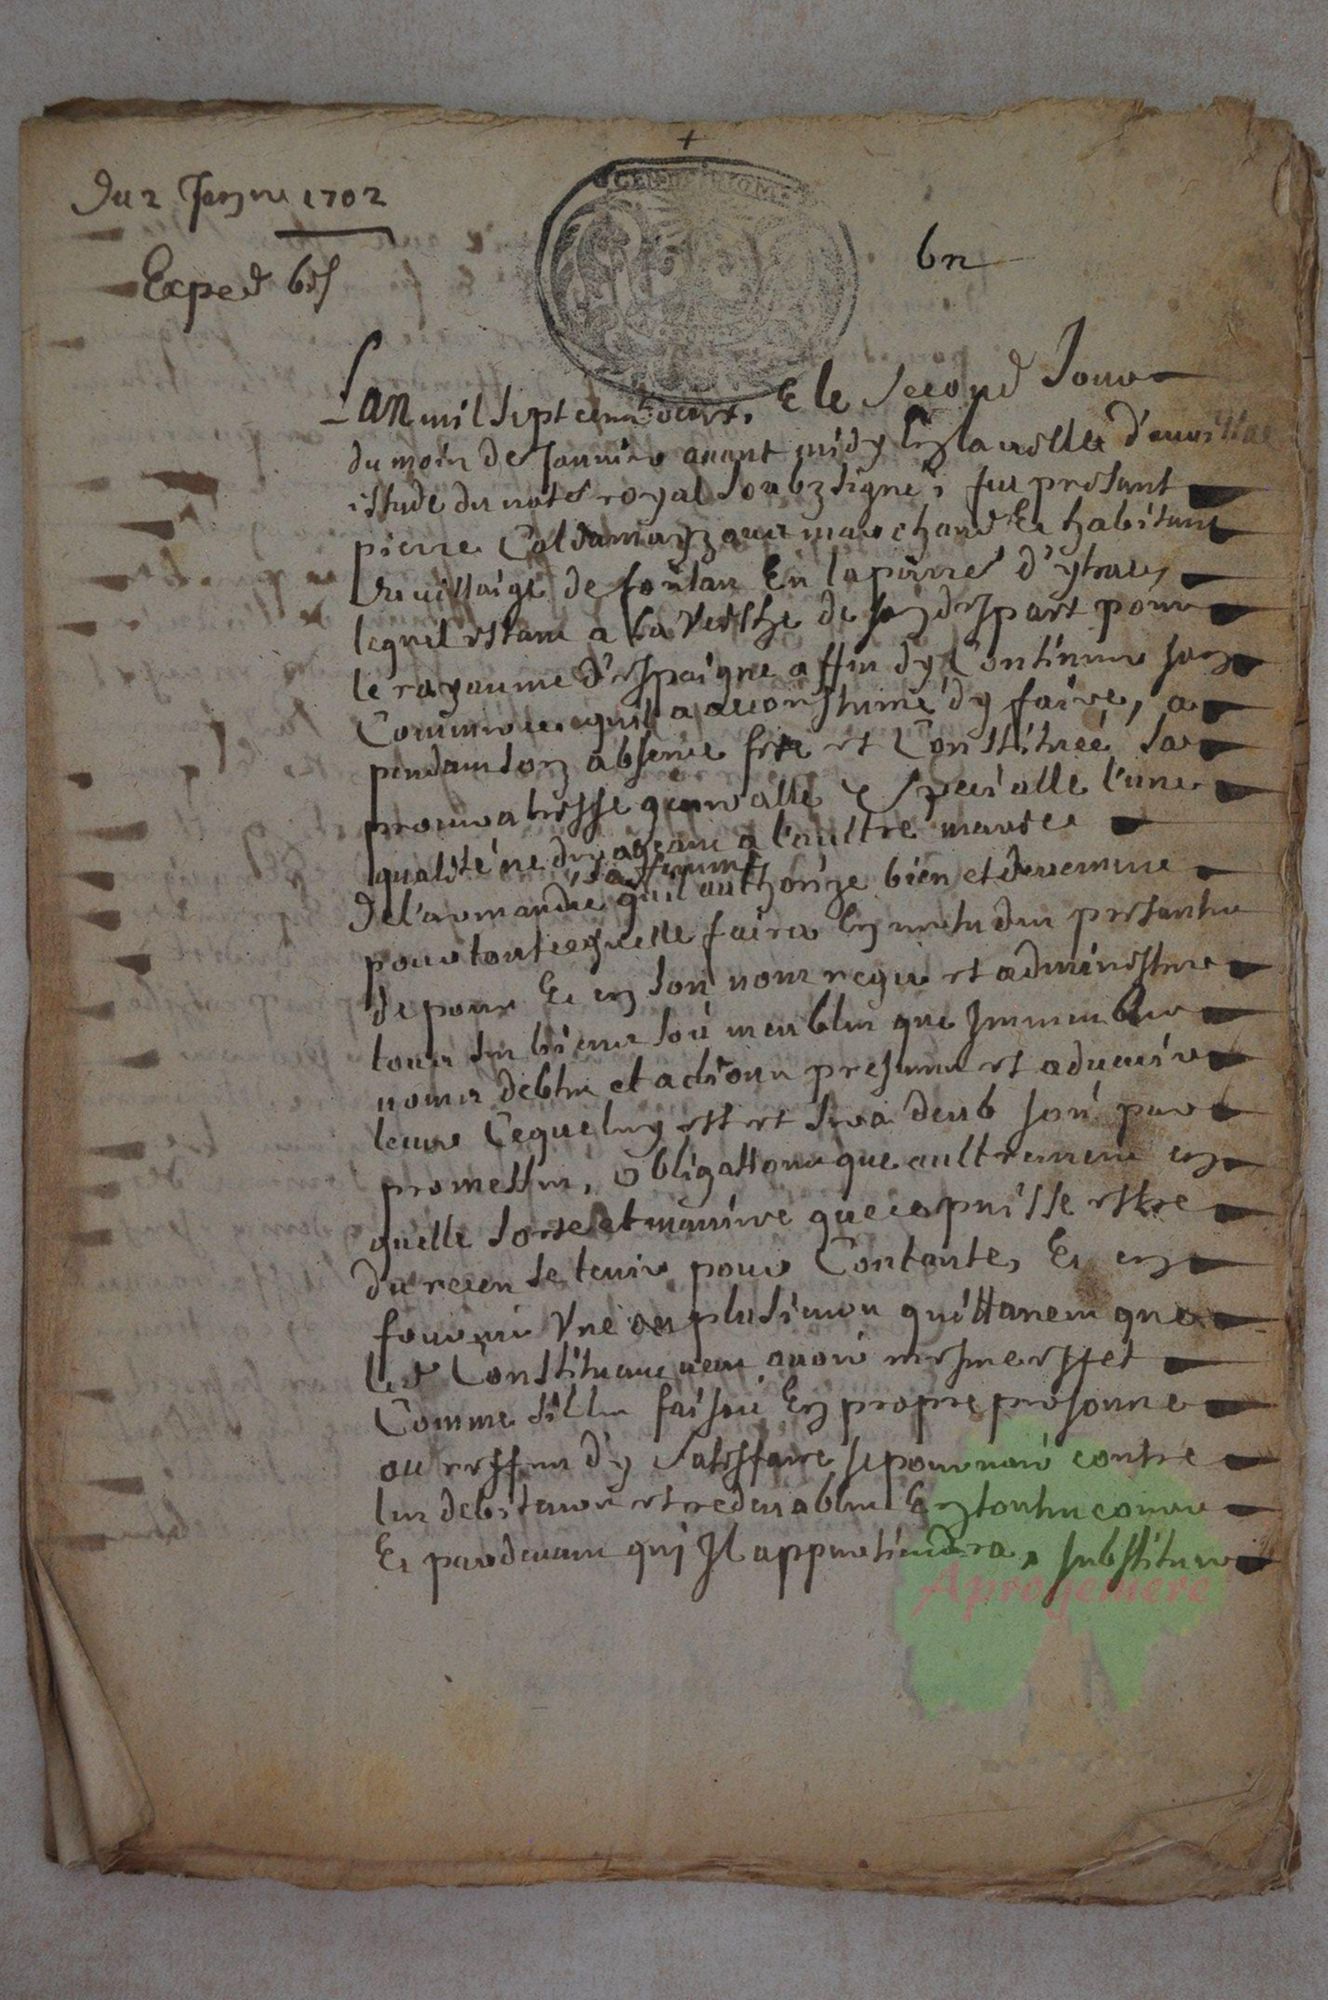 +
Du 2 Janvie 1702
Exped
Lan mil sept cens deux, E le second Jour
du mois de Janvier avant midy En la ville d'aurillac
estude du note royal soubzsigné, fut presant
pierre marchand Et habitant
du villaige de foulan En la parre d'ytrac,
lequel estant a la veilhe de son despart pour
le royaume d'espaigne affin dy Continuer son
Commerce quil a acoustumé dy faire, a
pendant son absence fete et Constitueé sa
procuratresse generalle & specialle l'une
qualité ne derogeant a l'aultre marie
De l'armandie sa femme quil authorize bien et deuement
pour tout ce quelle faira En vertu des presantes
de pour Et en son nom regir et administrer
tous ses biens soit meubles que Immeubles
noms debtes et actions presens et advenir
lever Ce que luy est et sera deub soit par
promesses, obligations que aultrement en
quelle sorte et maniere que ce puisse estre
du receu se tenir pour Contante, Et en
fournir Une ou plusieurs quittances que
led Constituant veut avoir mesme effet
Comme si elles faisoit En propre personne
au reffus d'y satisffaire se pourvoir contre
les debiteurs et redevables En toutes cours
Et pardevant qui Il appartiendra, substituer
Aprogemere